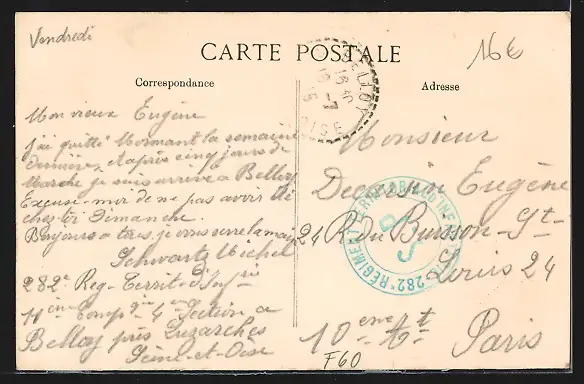 Vendredi
16€
CARTE POSTALE
Correspondance
Adresse
Mon vieux Eugène
J'ai quitté Mormant la semaine
dernière, et après cinq jours de
marche je suis arrivé a Belloy
Excuse-moi de ne pas avoir été
chez toi Dimanche.
Bonjours a tous, je vous serre la main
Schwartz Michel
282e Reg-Territ d'Infrie
11ème Compgie 4eme Section a
Belloy près Luzarches
Seine-et-Oise
Monsieur
Eugène
24 R. Du Buisson-St-
Louis 24
10eme Art
Paris
F60
BELLOY
OISE
282e RÉGIMENT TERRITORIAL D'INF